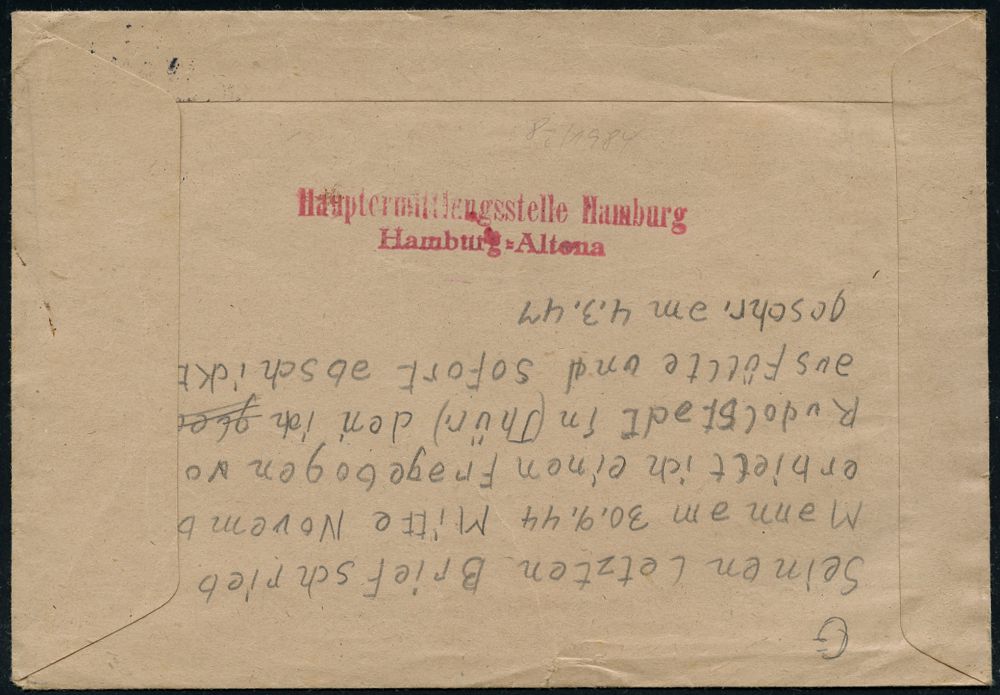 Hauptermittlungsstelle Hamburg
Hamburg=Altona
G
Seinen letzten Brief schrieb
Mann am 30.9.44 Mitte Novemb
erhielt ich einen Fragebogen vo
Rudolstadt in (Thür.) den ich
ausfüllte und sofort abschickt
geschr. am 4.3.47